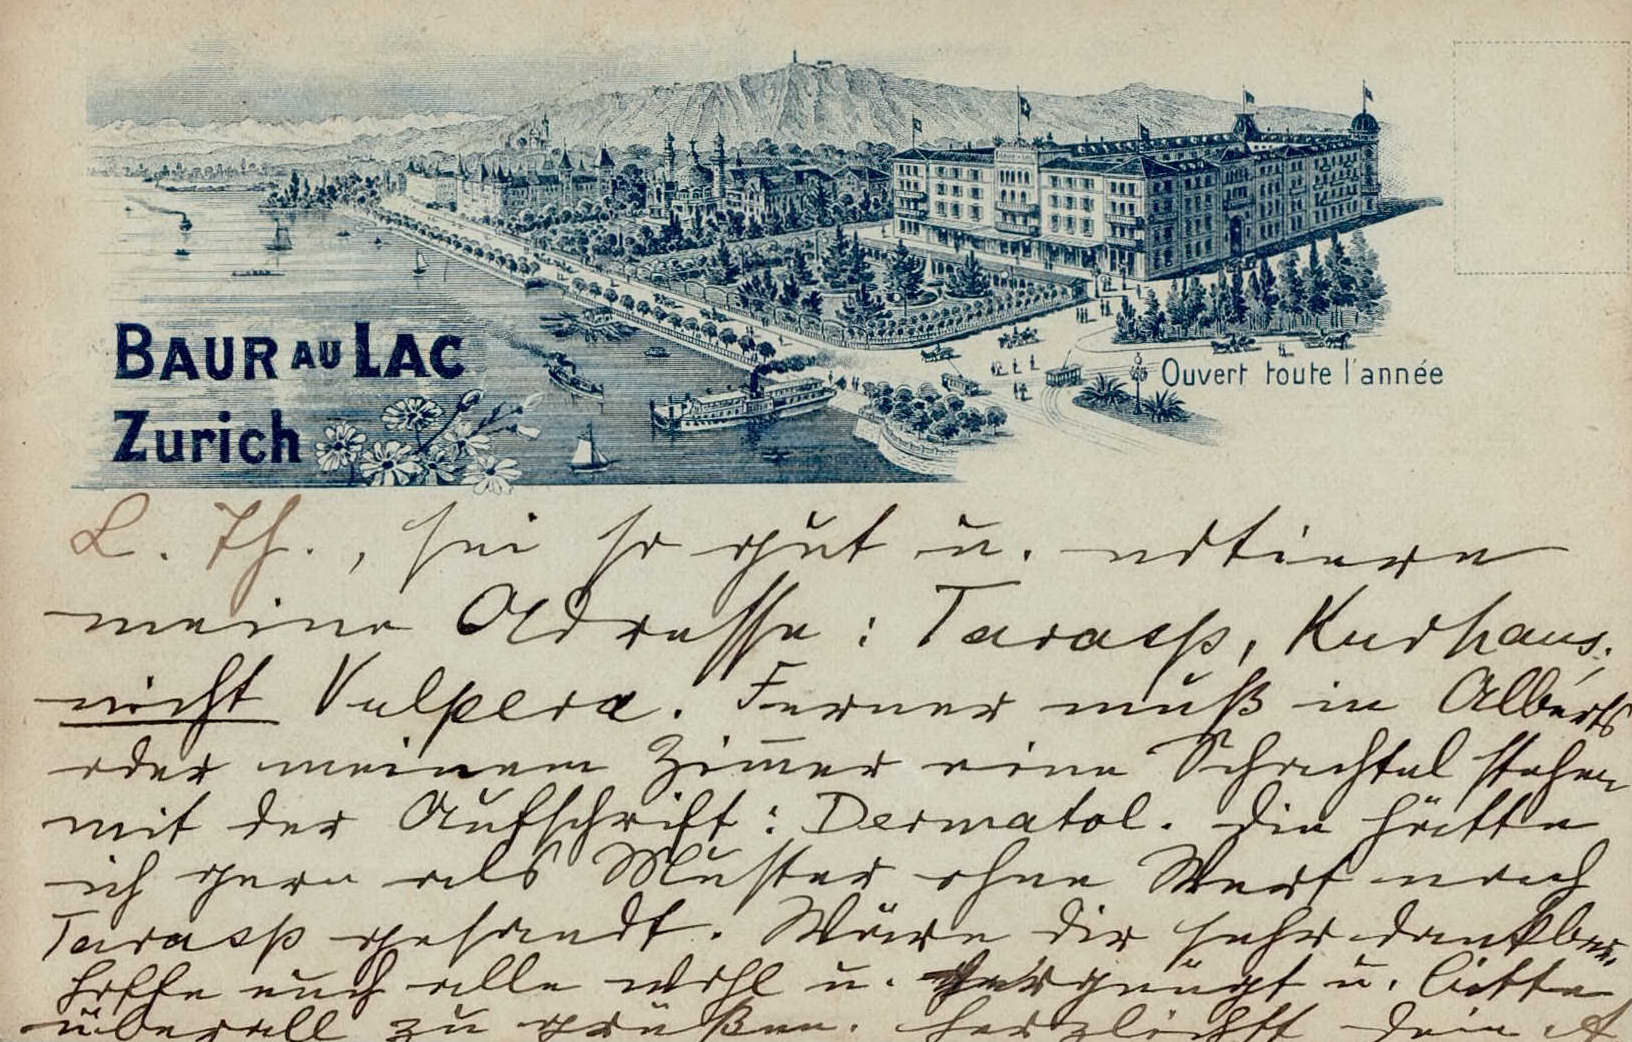 BAUR AU LAC
Zurich
Ouvert toute l'année
L. Th., sei so gut u. notiere
meine Adresse: Tarasp, Kurhaus,
nicht Vulpera. Ferner muß in Alberts
oder meinem Zimmer eine Schachtel stehen
mit der Aufschrift: Dermatol. Die hätte
ich gern als Muster ohne Wert nach
Tarasp gesandt. Wäre dir sehr dankbar.
Hoffe euch alle wohl u. vergnügt u. bitte
überall zu grüßen. Herzlichst dein A